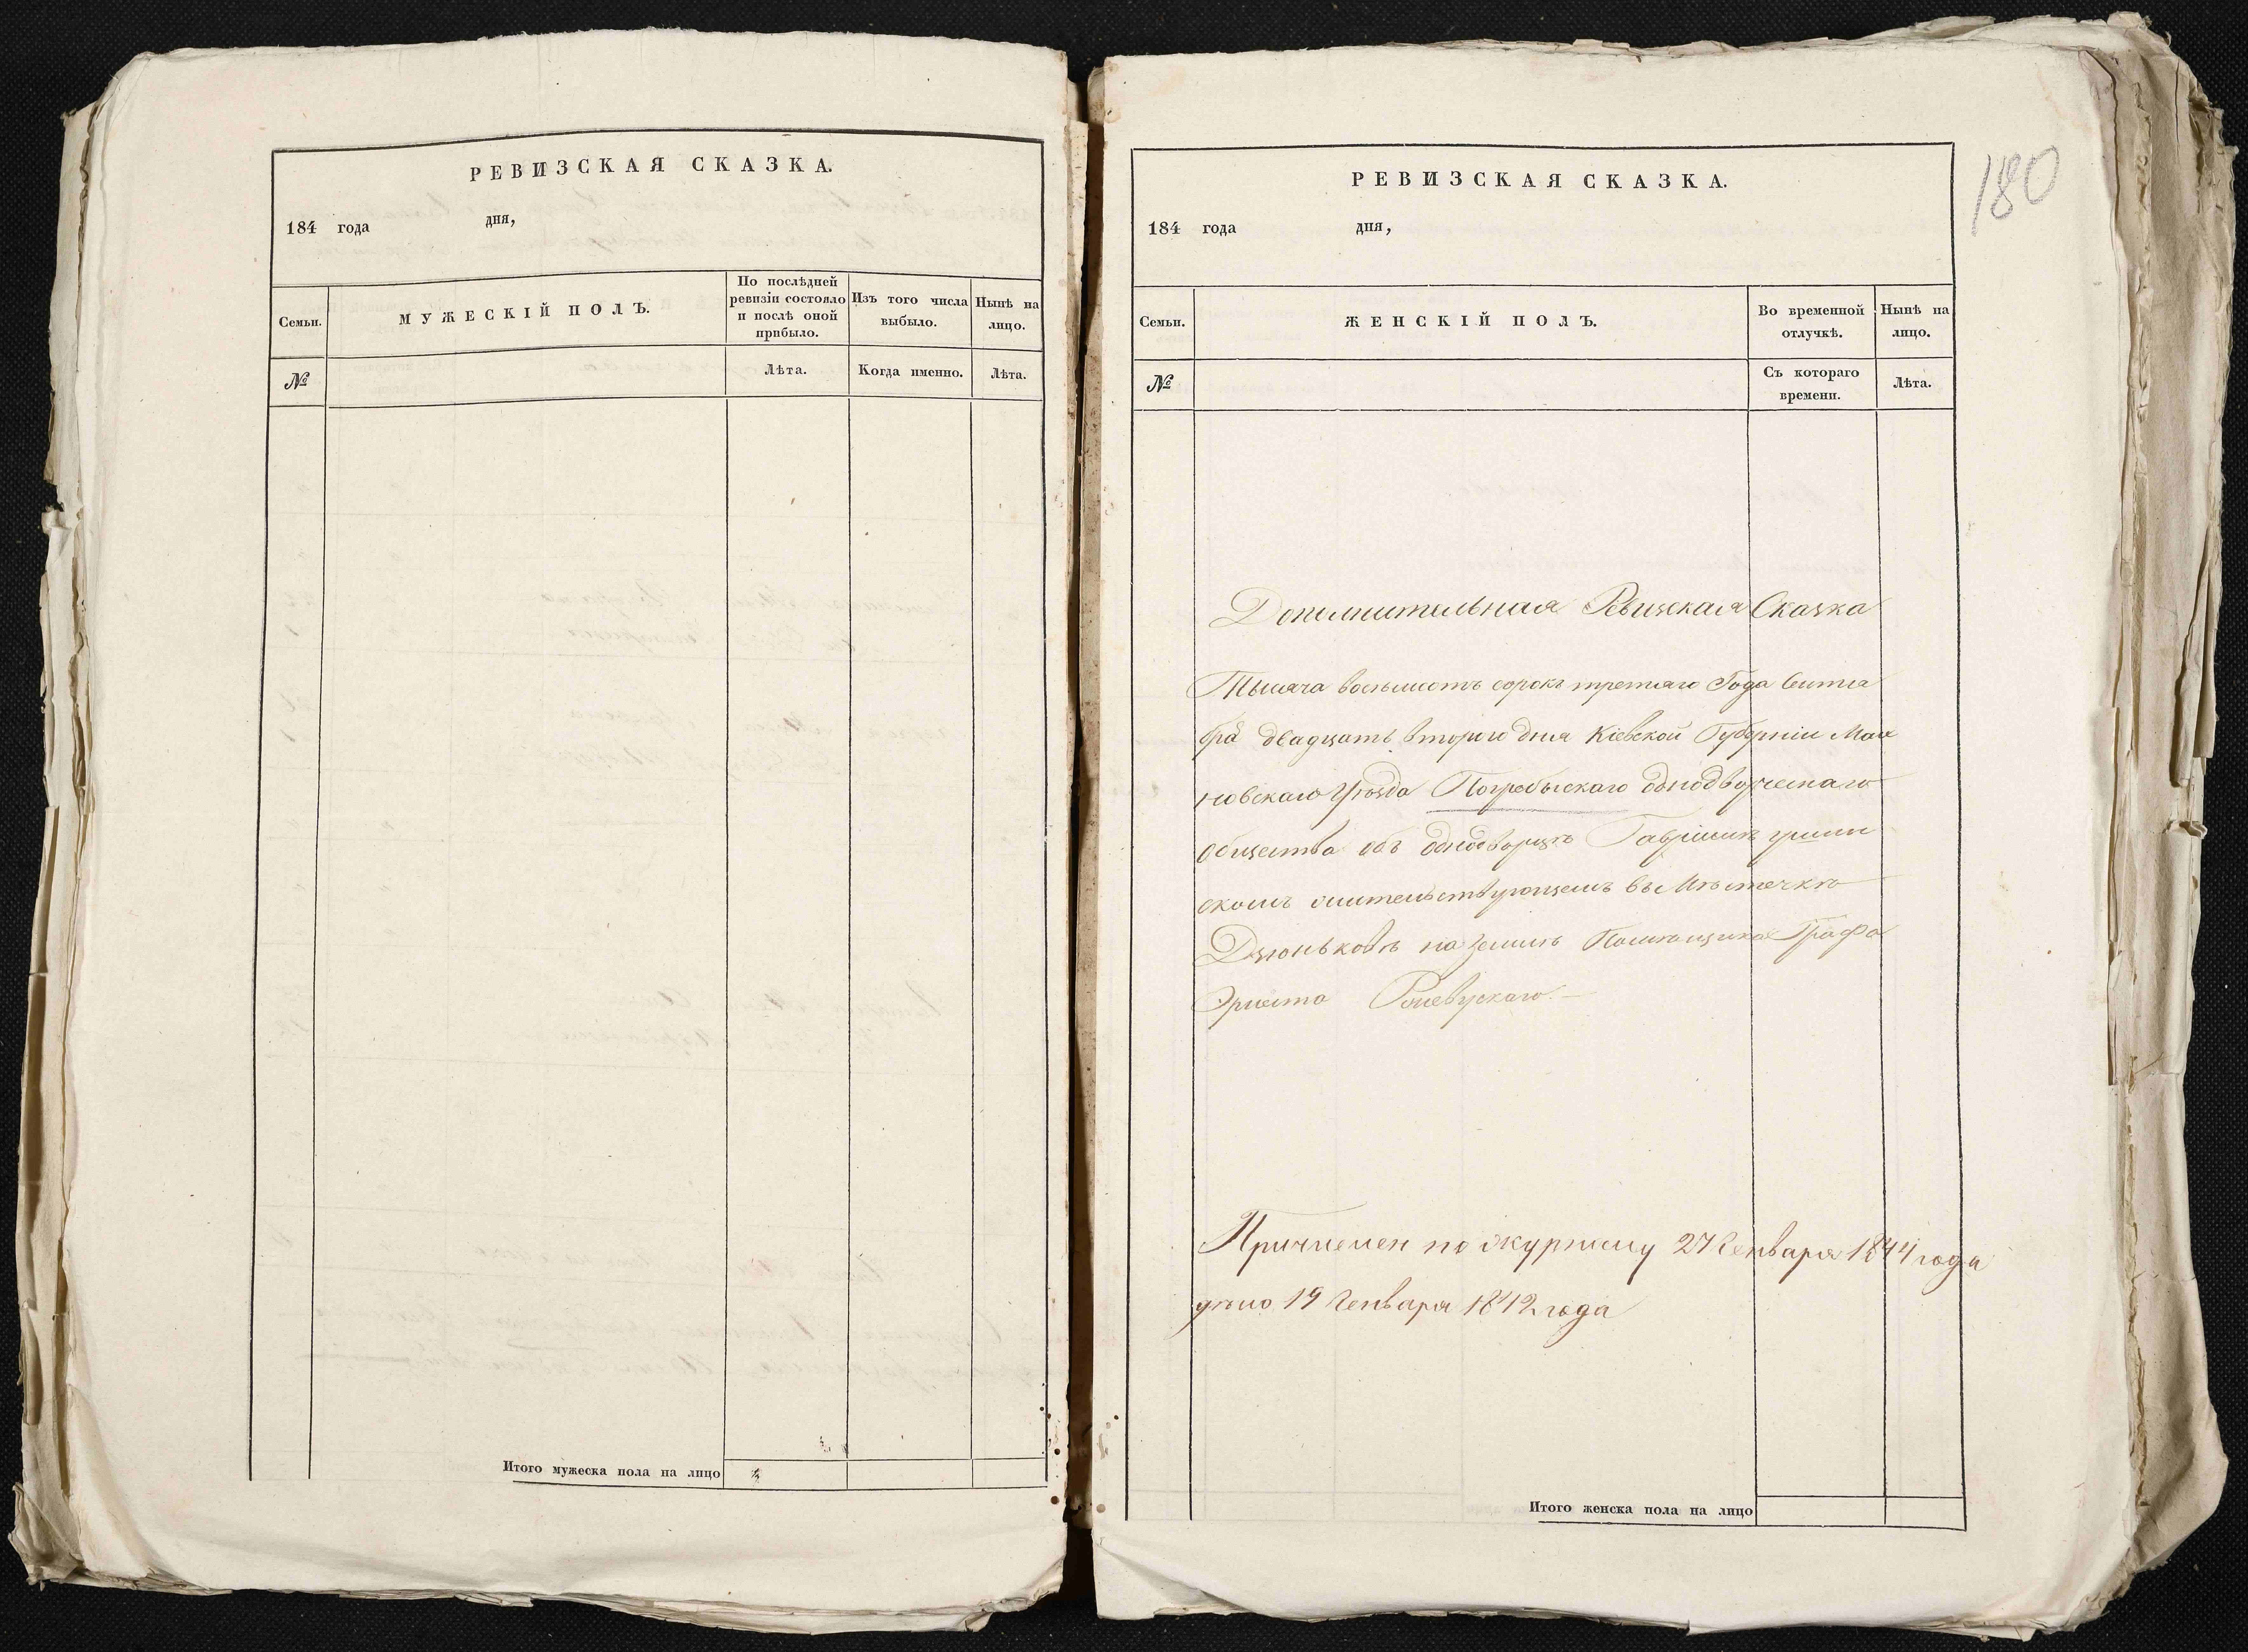 РЕВИЗСКАЯ СКАЗКА.
184 года дня,
Семьи.
МУЖЕСКІЙ ПОЛЪ.
По послѣдней ревизіи состояло и послѣ оной прибыло.
Изъ того числа выбыло.
Нынѣ на лицо.
№
Лѣта.
Когда именно.
Лѣта.
Итого мужеска пола на лицо
180
РЕВИЗСКАЯ СКАЗКА.
184 года дня,
Семьи.
ЖЕНСКІЙ ПОЛЪ.
Во временной отлучкѣ.
Нынѣ на лицо.
№
Съ котораго времени.
Лѣта.
Дополнительная Ревизская Сказка
Тысяча восемьсотъ сорокъ третьяго Года Сентя
бра двадцать второго дня Кіевской Губерніи Мах
новскаго Уѣзда Погребыскаго однодворческаго
общества объ однодворцѣ
скомъ жительствующемъ въ Мѣстечкѣ
Дзюньковѣ на Землѣ Помѣщика Графа
Эрнеста Ржевускаго.
Причислен по журналу 27 Генваря 1844 года
19 Генваря 1842 года
Итого женска пола на лицо